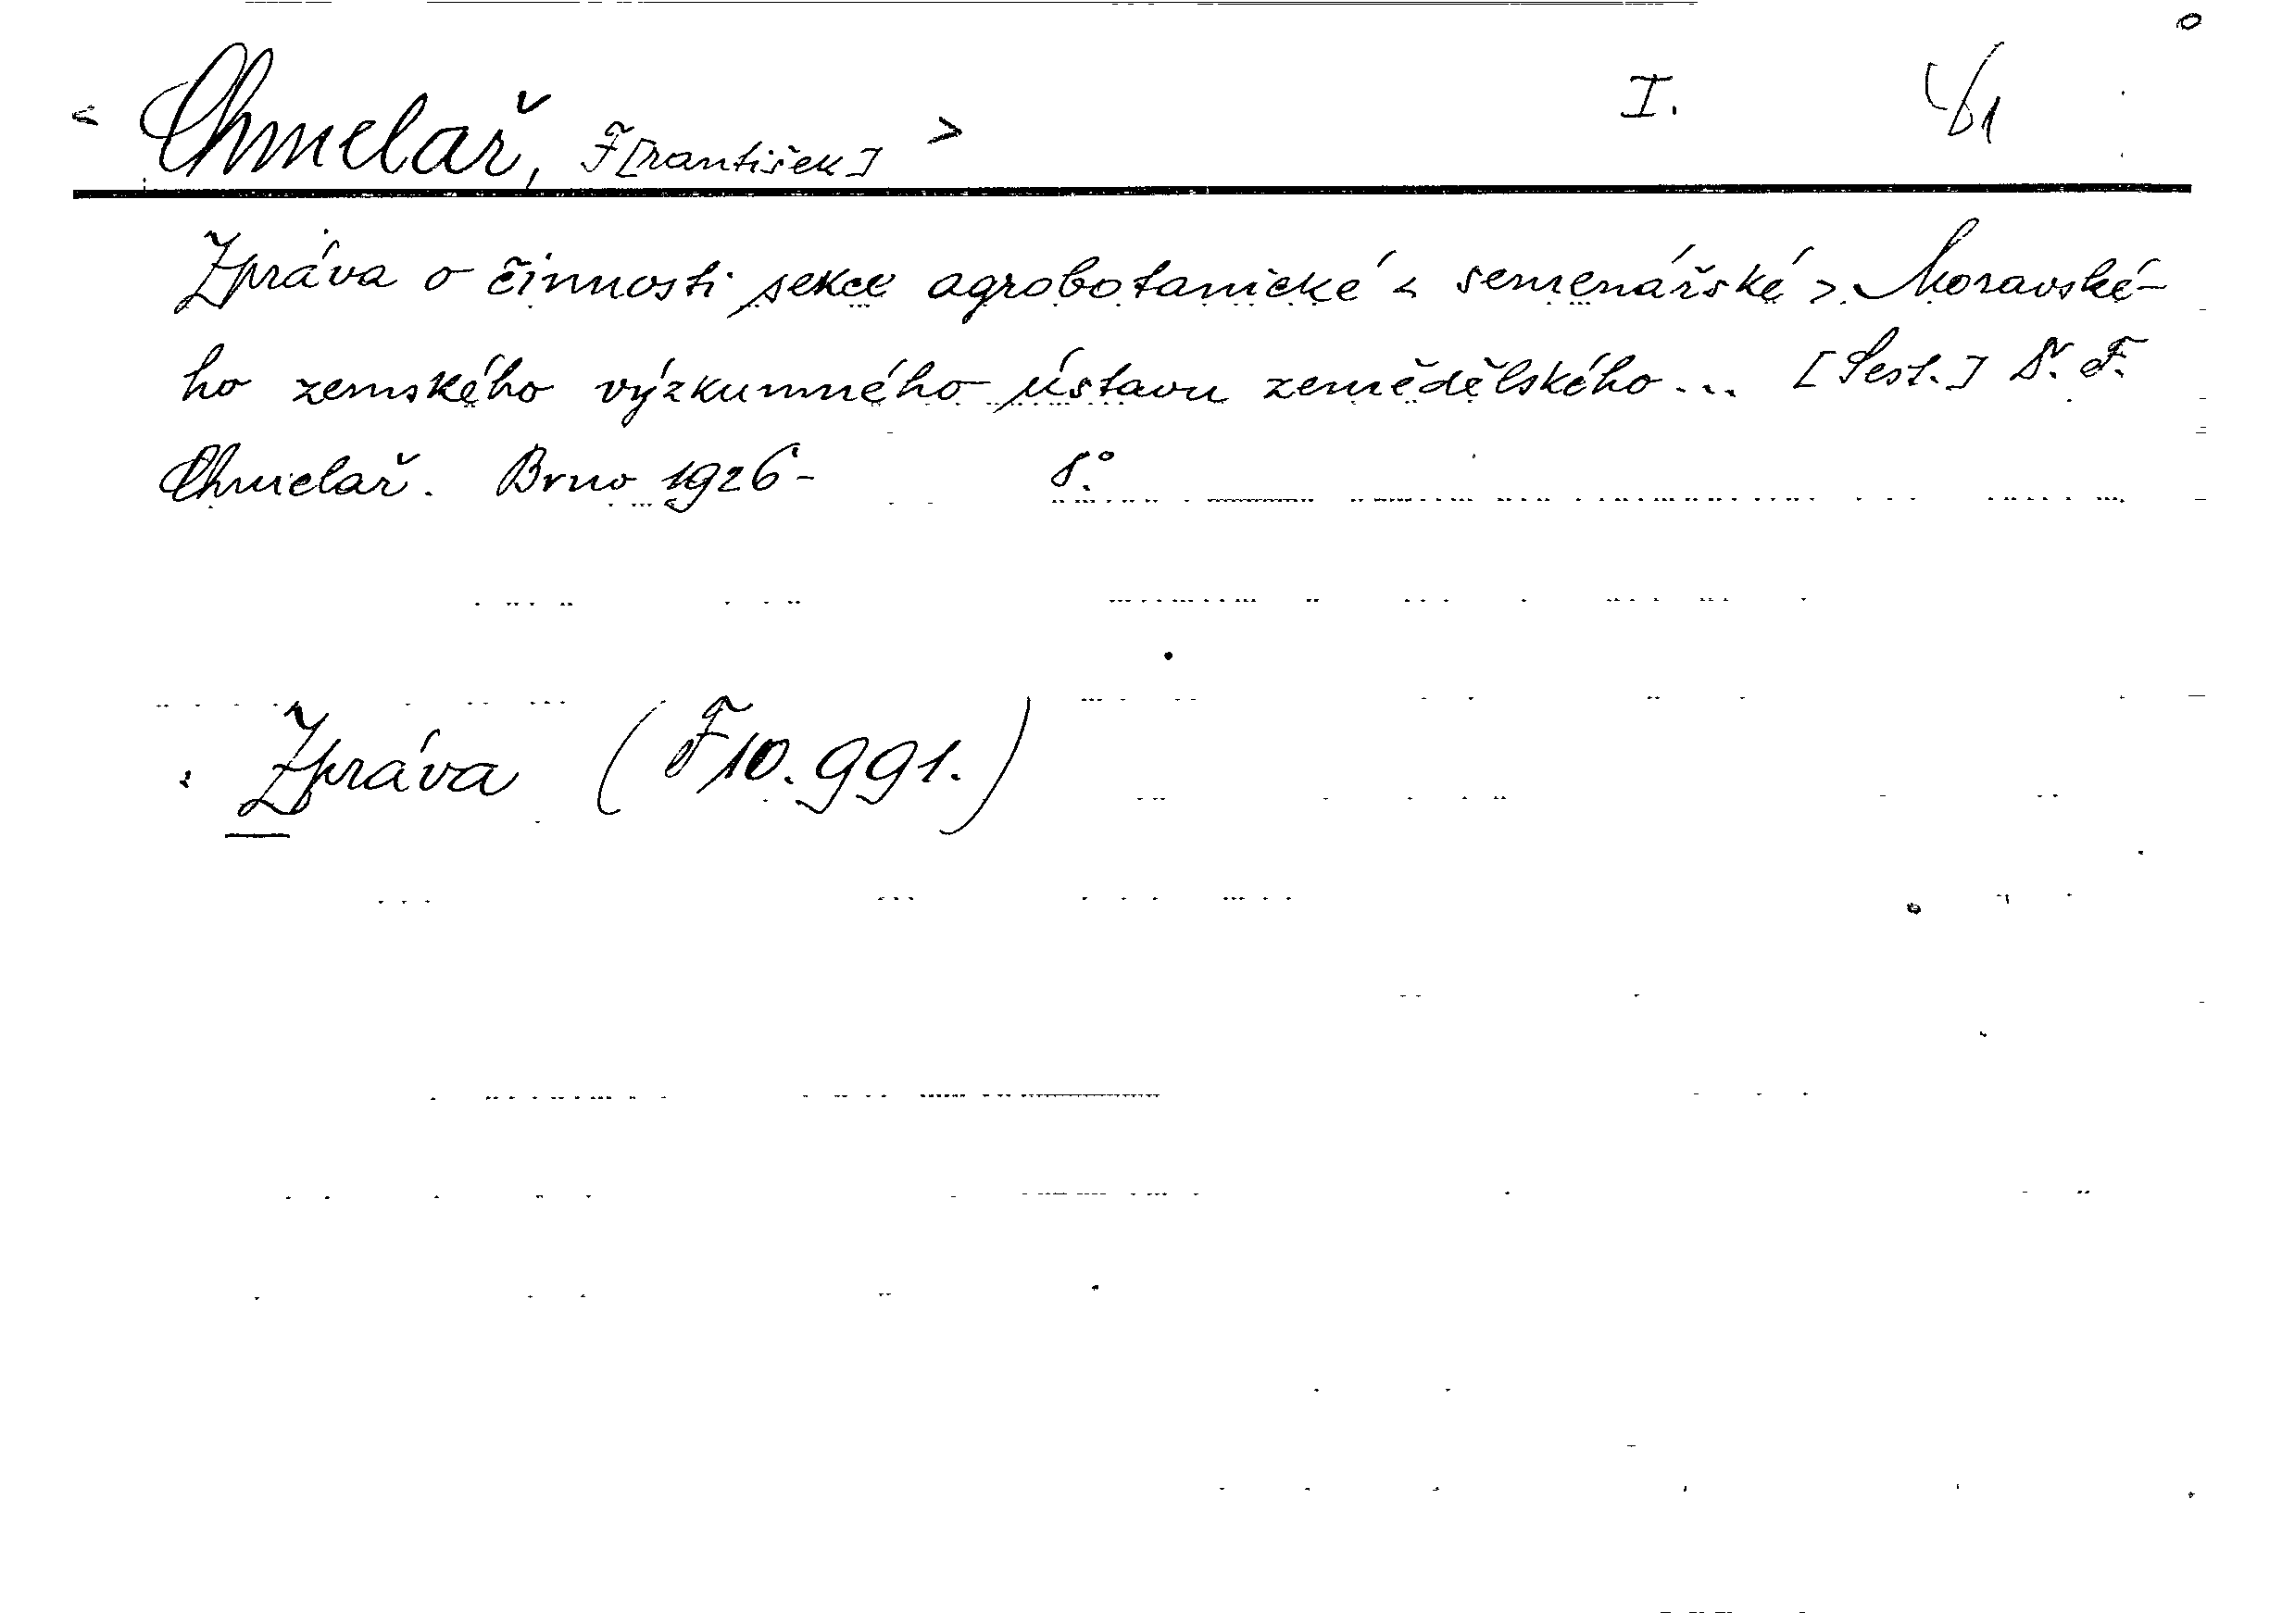 < Chmelař, F[rantišek] > I.
Zpráva o činnosti sekce agrobotanické < semenářské > Moravské-
ho zemského výzkumného ústavu zemědělského... [Sest.] Dr. F.
Chmelař. Brno 1926- 8°.
Zpráva (F10.991.)